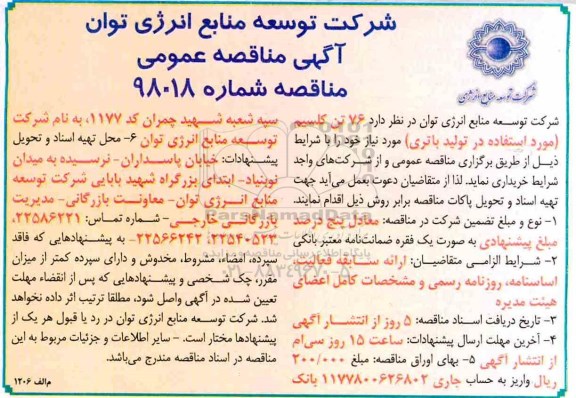 شرکت توسعه منابع انرژی توان
آگهی مناقصه عمومی
مناقصه شماره ۹۸۰۱۸
شرکت توسعه منابع انرژی
شرکت توسعه منابع انرژی توان در نظر دارد ۷۶ تن کلسیم
(مورد استفاده در تولید باتری) مورد نیاز خود را با شرایط
ذیل از طریق برگزاری مناقصه عمومی و از شرکت‌های واجد
شرایط خریداری نماید. لذا از متقاضیان دعوت بعمل می‌آید جهت
تهیه اسناد و تحویل پاکات مناقصه برابر روش ذیل اقدام نمایند.
۱- نوع و مبلغ تضمین شرکت در مناقصه: معادل پنج درصد
مبلغ پیشنهادی به صورت یک فقره ضمانت‌نامه معتبر بانکی
۲- شرایط الزامی متقاضیان: ارائه سابقه فعالیت،
اساسنامه، روزنامه رسمی و مشخصات کامل اعضای
هیئت مدیره
۳- تاریخ دریافت اسناد مناقصه: ۵ روز از انتشار آگهی
۴- آخرین مهلت ارسال پیشنهادات: ساعت ۱۵ روز سی‌ام
از انتشار آگهی ۵- بهای اوراق مناقصه: مبلغ ۲۰۰/۰۰۰
ریال واریز به حساب جاری ۱۱۷۷۸۰۰۶۲۶۸۰۲ بانک
سپه شعبه شهید چمران کد ۱۱۷۷، به نام شرکت
توسعه منابع انرژی توان ۶- محل تهیه اسناد و تحویل
پیشنهادات: خیابان پاسداران- نرسیده به میدان
نوبنیاد- ابتدای بزرگراه شهید بابایی شرکت توسعه
منابع انرژی توان- معاونت بازرگانی- مدیریت
بازرگانی خارجی- شماره تماس: ۲۲۵۸۶۲۲۱،
۲۲۵۴۰۵۳۲- ۲۲۵۶۶۲۴۲- به پیشنهادهایی که فاقد
سپرده، امضاء، مشروط، مخدوش و دارای سپرده کمتر از میزان
مقرر، چک شخصی و پیشنهادهایی که پس از انقضاء مهلت
تعیین شده در آگهی واصل شود، مطلقا ترتیب اثر داده نخواهد
شد. شرکت توسعه منابع انرژی توان در رد یا قبول هر یک از
پیشنهادها مختار است. - سایر اطلاعات و جزئیات مربوط به این
مناقصه در اسناد مناقصه مندرج می‌باشد.
م‌الف ۱۲۰۶